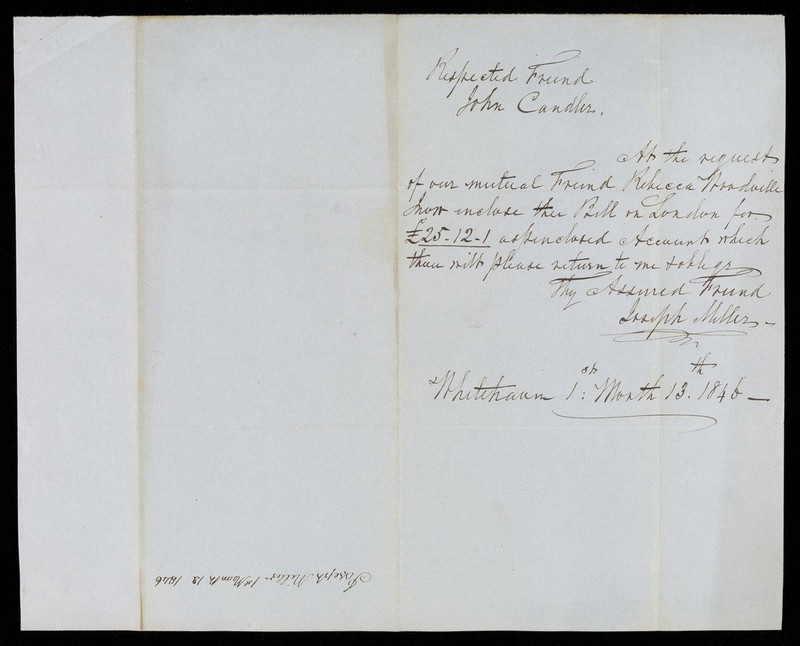 Respected Friend
John Candler,
At the request
of our mutual Friend Rebecca Woodville
I now inclose thee Bill on London for
£25-12-1 as inclosed Account which
thou wilt please return to me & oblige
Thy Assured Friend
Joseph Miller
Whitehaven 1st: Month 13th. 1846 —
Joseph Miller 1st Month 13 1846